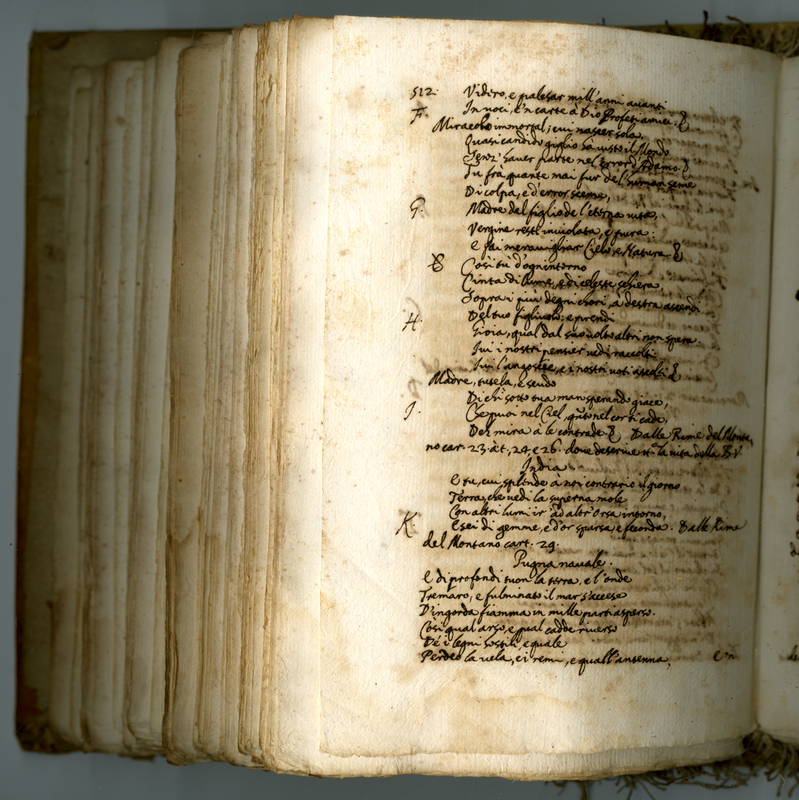 512. Vidiro, e palesar mill'anni avanti
F. In voci, e'n carte à Dio Profeti amici. &
Miracolo immortal; cui nascer sola,
Quasi candido giglio hà visto il Mondo
Senz' haver parte nel error d'Adamo. &
Tu frà quante mai fur del human seme
Di colpa, e d'error sceme,
G. Madre del figlio de l'eterna vita,
Vergine resti inviolata, e pura:
E fai meravigliar Cielo, e Natura. &
& Cosi tu d'ogn'intorno
Cinta di lume, e di celeste schiera,
Sopra i più degni chori, a destra ascendi
H. Del tuo figliuolo: e prendi
Gioia, qual dal suo volto altri non spera.
Ivi i nostri pensier vedi raccolti:
Ivi l'angoscie, e i nostri voti ascolti &
Madre, tutela, e scudo
Di chi sotto tua man sperando giace,
I. Che puoi nel Ciel, qũto nel cor ti cade,
Deh mira à le contrade. & Dalle Rime del Monta,
no car. 23. à t, 24, e 26. dove descrive tt.a la vita della B. V.
India
E tu, cui splende à noi contrario il giorno
Terra, che vedi la superna mole
Con altri lumi ir' ad altr' Orsa intorno,
K. E sei di gemme, e d'or sparsa e feconda. Dalle Rime
del Montano cart. 29.
Pugna navale.
E di profondi tuon la terra, e l'onde
Tremaro, e fulminato il mar s'accese
D'ingorda fiamma in mille parti asperso.
Cosi qual arso, e qual cadde riverso
De i legni hostili, e quale
Perdeo la vela, e i remi, e quall'antenna,
E'n